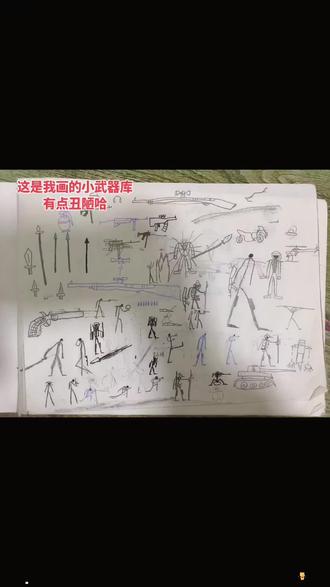 这是我画的小武器库
有点丑陋哈